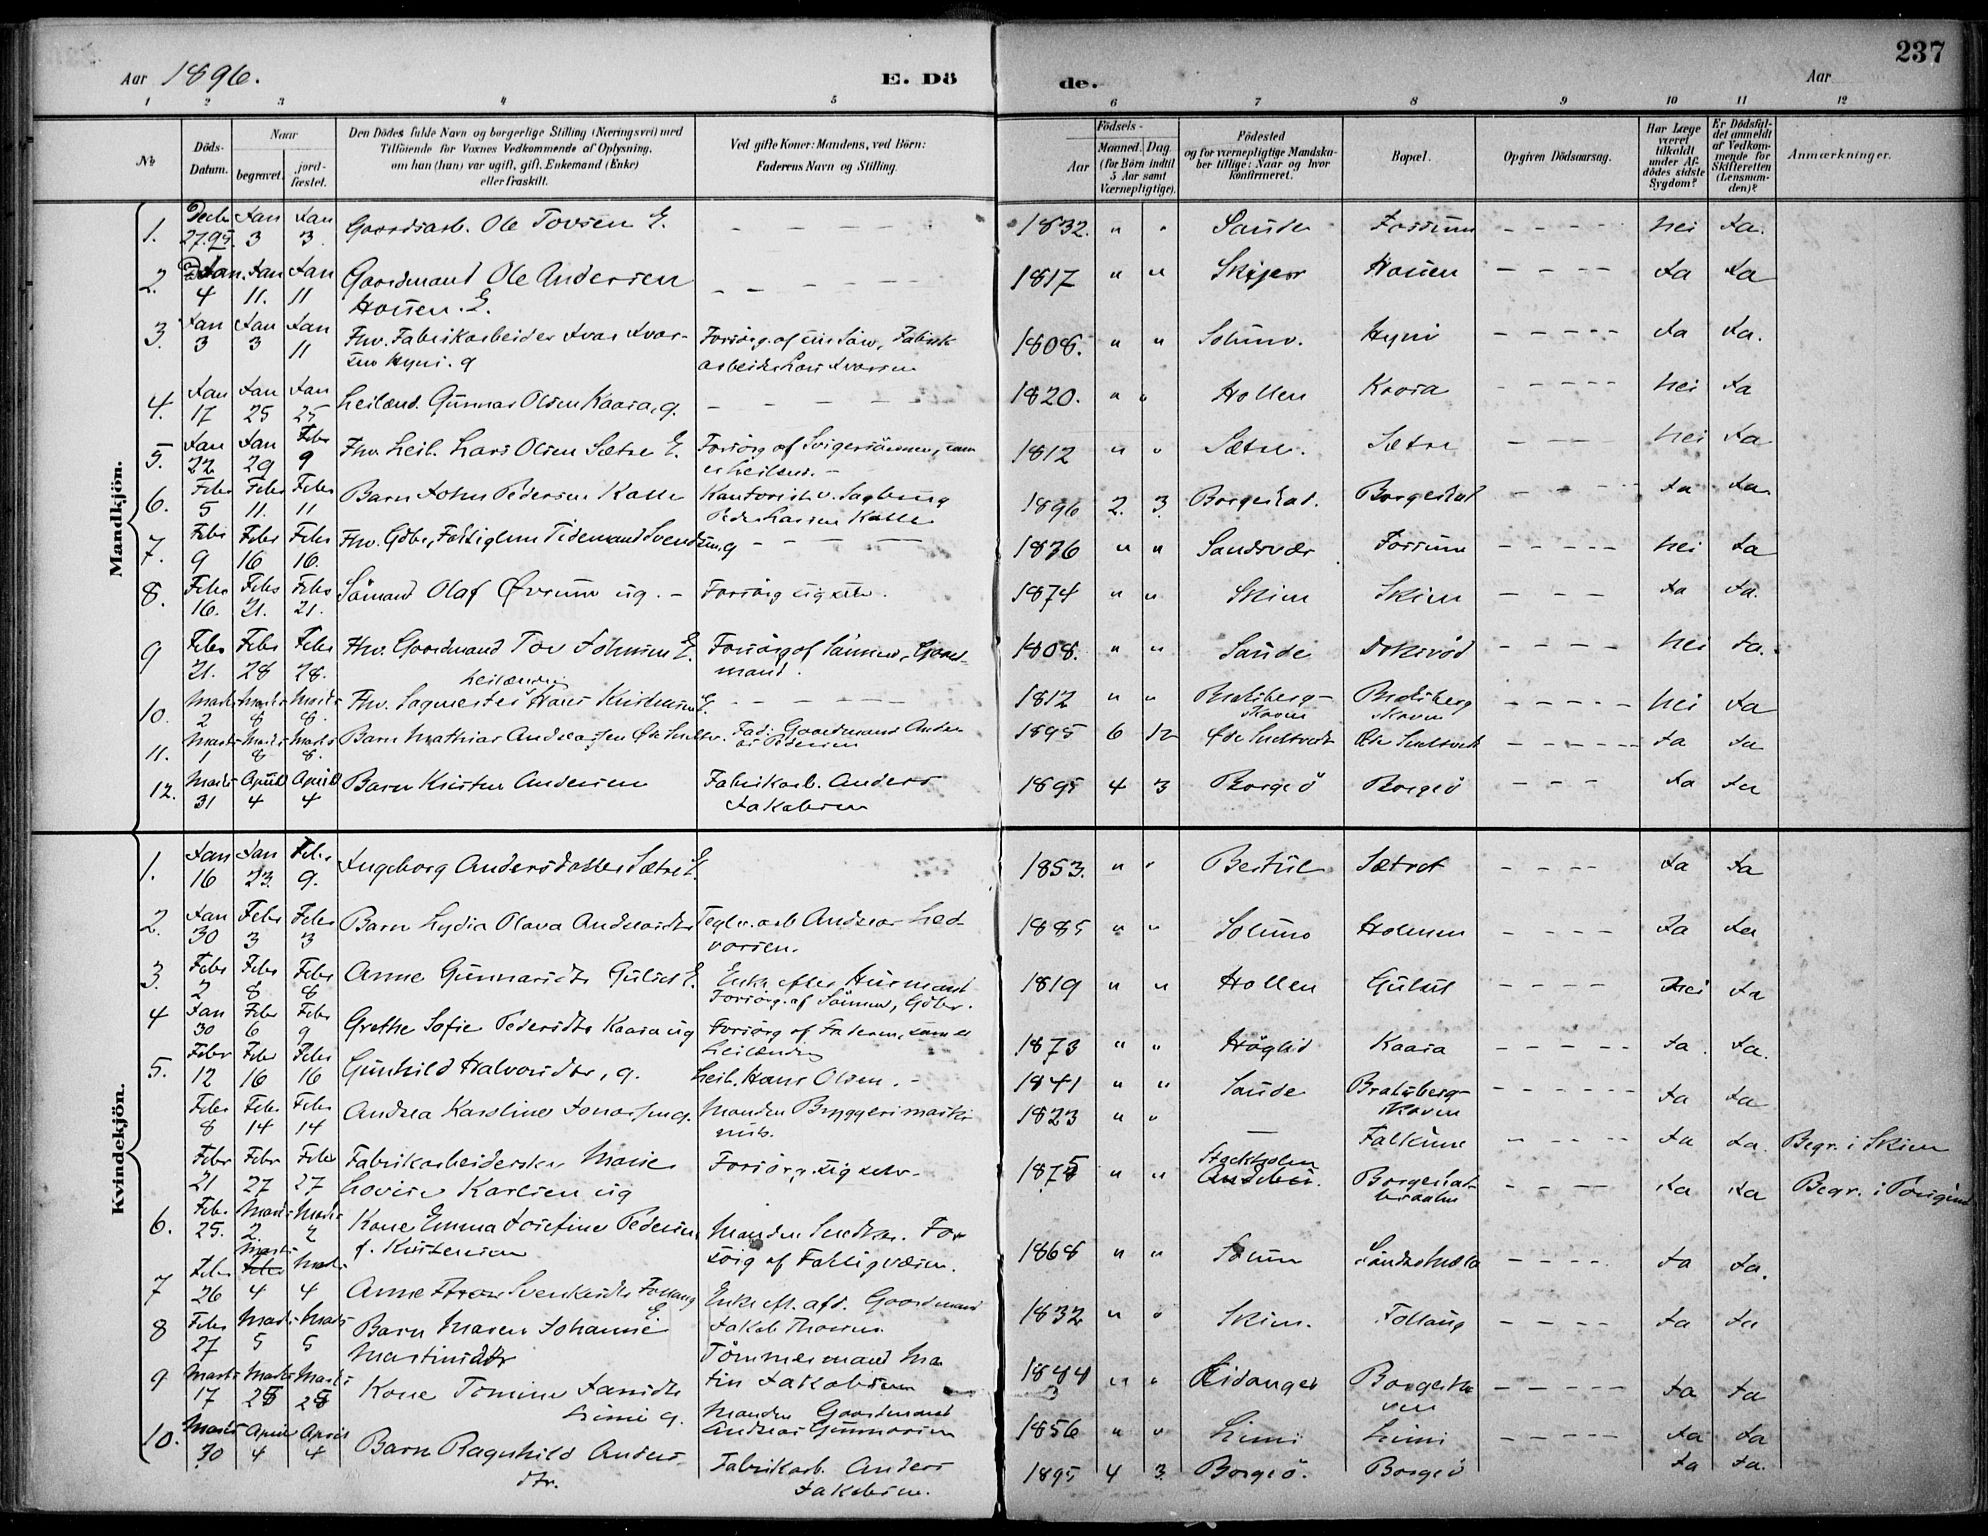 237
Aar 1896.
E. Dö
de.
Aar
1 2 3 4 5 6 7 8 9 10 11 12
No
Döds-Datum.
Naar
begravet.
jord-fæstet.
Den Dödes fulde Navn og borgerlige Stilling (Næringsvei) med
Tilföiende for Voxnes Vedkommende af Oplysning,
om han (hun) var ugift, gift, Enkemand (Enke)
eller fraskilt.
Ved gifte Koner: Mandens, ved Börn:
Faderens Navn og Stilling.
Födsels-
Aar
Maaned.
Dag.
(for Börn indtil
5 Aar samt
Værnepligtige).
Födested
og for værnepligtige Mandska-
ber tillige: Naar og hvor
konfirmeret.
Bopæl.
Opgiven Dödsaarsag.
Har Læge
været
tilkaldt
under Af-
dödes sidste
Sygdom?
Er Dödsfal-
det anmeldt
af Vedkom-
mende for
Skifteretten
(Lensman-
den)?
Anmærkninger.
Mandkjön.
1. Decbr 27.95 Jan 3 Jan 3. Gaardsarb. Ole Tovsen E. 1832. " " Saude Fossum nei Ja.
2. Jan. 4 Jan 11. Jan 11 Gaardmand Ole Andersen 1817 " " Houen Ja Ja
Houen. E.
3. Jan 3 Jan 3 Jan 11 Fhv. Fabrikarbeider Ivar Ivar- Forsörg. af en Sön, Fabrik 1808. " " Solum. Ja Ja.
sen g arbeider Lars Ivarsen
4. Jan 17 Jan 25 Jan 25 Leilænd. Gunnar Olsen Kaasa, g. 1820. " " Hollen Kaasa nei Ja
5. Jan 22 Jan 29 Febr 9 Fhv. Leil. Lars Olsen Sætre E. Forsörg af Svigersönnen, som 1812 " " Sætre. Sætre nei Ja
er Leilænd. -
6. Febr 5 Febr 11. Febr 11 Barn John Pedersen Kontorist v. Sagbrug 1896 2. 3. Borgestad. Borgestad Ja Ja
Peder Larsen
7. Febr 9 Febr 16 Febr 16. Fhv. Gbr., Fattiglem Tidemand Svendsen, g 1836 " " Sandsvær Fossum nei Ja
8. Febr 16. Febr 21. Febr 21. Sömand Olaf Øvrum ug. - Forsörg sig selv. 1874 " " Skien Skien Ja Ja.
9 Febr 21. Febr 28 Febr 28. Fhv. Gaardmand Tov Johnsen E. Forsörg af Sönnen, Gaard- 1808. " " Saude nei Ja.
mand.
Leilænding
10. Marts 2 Marts 8 Marts 8. Fhv. Sagmester Hans Kristensen E. 1812 " " Bratsberg- Bratsberg nei Ja
skoven skoven
11. Marts 1 Marts 8 Marts 8. Barn Mathias Andreassen Fad: Gaardmand Andre- 1895 6 12 Ja Ja
as Pedersen
12. Marts 31 April 4 April 4 Barn Kristen Andersen Fabrikarb. Anders 1895 4 3 Borgeö Borgeö Ja Ja
Jakobsen
Kvindekjön.
1. Jan 16 Jan 23. Febr. 9. Ingeborg Andersdatter Sætre E. 1853. " " Bestul Sætret Ja Ja
2. Jan 30 Febr 3 Febr 3 Barn Lydia Olava Andreasdtr Teglv. arb Andreas Hed- 1885 " " Solum Holmen Ja Ja
varsen.
3. Febr 2 Febr 8 Febr 8 Anne Gunnarsdtr Gulset E. Enke efter Husmand 1819 " " Hollen Gulset nei Ja
Forsörg. af Sönnen, Gbr.
4 Jan 30 Febr 6 Febr 9 Grethe Sofie Pedersdtr Kaasa ug Forsörg af Faderen, som er 1873 " " Kaasa Ja. Ja.
Leilænding
5. Febr 12 Febr 16 Febr 16 Gunhild Halvorsdtr, g. Leil. Hans Olsen. - 1841 " " Saude Bratsberg- Ja Ja
skoven
Febr 8 Febr 14 Febr 14 Andrea Karoline g. Manden Bryggeri 1823 " " — Falkum Ja Ja. Begr. i Skien
Febr 21 Febr 27 Febr 27 Fabrikarbeiderske Marie Forsörg. sig selv. 1875 " " Stockholm Ja Ja Begr. i Porsgrund
Lovise Karlsen ug
6. Febr 25. Marts 2. Marts 2 Kone Emma Josefine Pedersen Manden Snedker. For- 1868 " " Ja Ja.
f. Kristensen sörg af Fattigvæsen.
7 Febr 26 Marts 4 Marts 4 Anne Svenkesdtr Follaug Enke eft. afd. Gaardmand 1832 " " Skien. Follaug Ja Ja
E. Jakob
8 Febr 27 Marts 5 Marts 5 Barn Maren Johanne Tömmermand Mar- 1844 " " Eidanger Ja Ja
Martinsdtr tin Jakobsen
9 Marts 17 Marts 25 Marts 25 Kone Tomine Jansdtr Manden Gaardmand 1856 " " Limi Limi Ja Ja
Limi g. Andreas Gunnarsen
10. Marts 30 April 4 April 4 Barn Ragnhild Anders- Fabrikarb. Anders 1895 4 3. Borgeö. Borgeö Ja Ja.
dtr. Jakobsen.